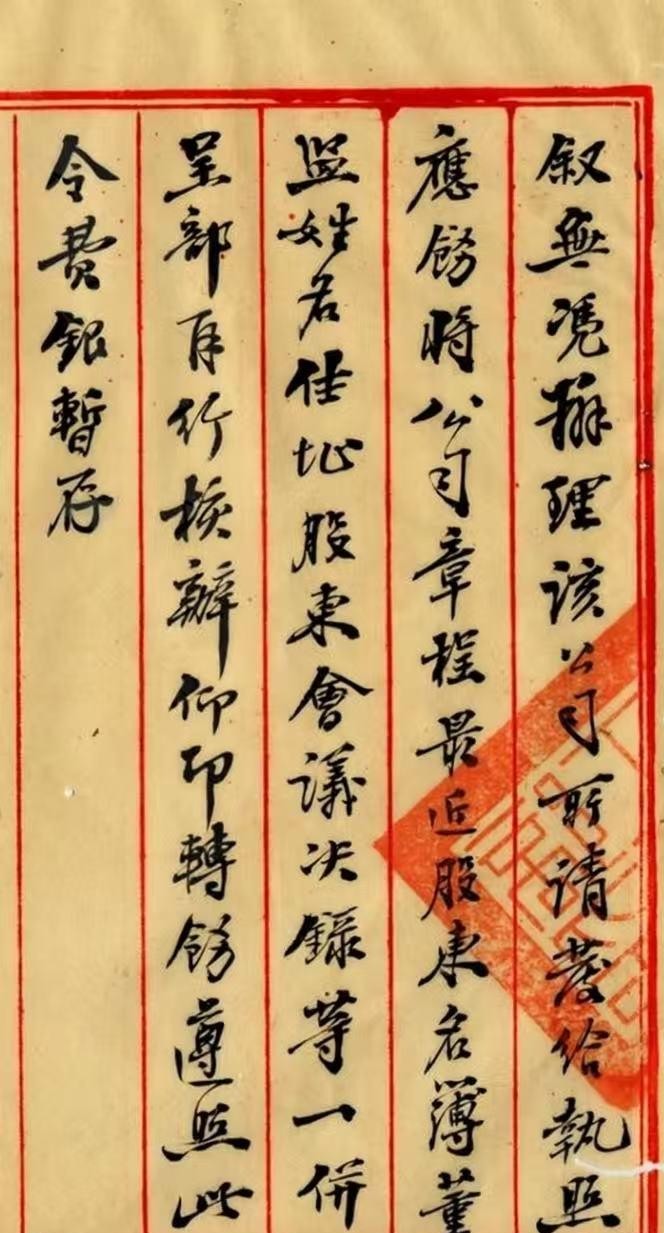 叙無凴辦理該公司所請發給執照
應飭將公司章程最近股東名簿董
監姓名住址股東會議决錄等一併
呈部再行核辦仰即轉飭遵照此
令費銀暫存